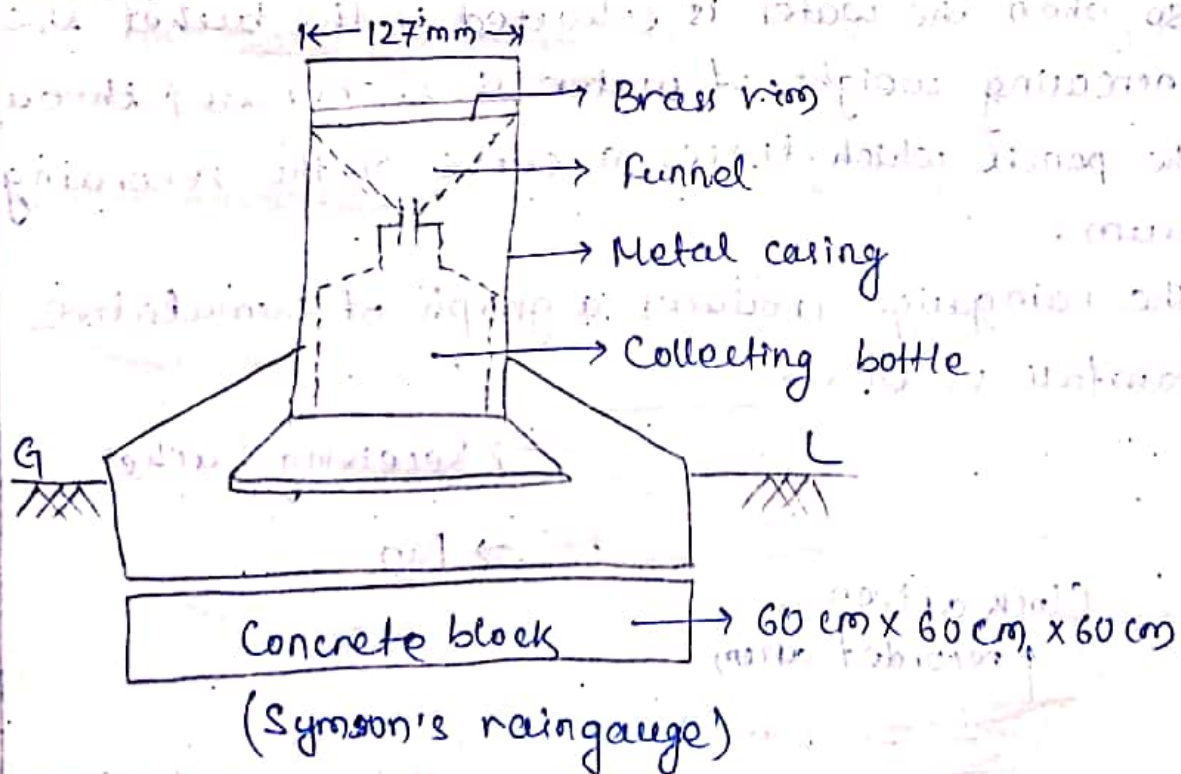 127 mm
Brass rim
Funnel
Metal casing
Collecting bottle
G L
Concrete block → 60 cm x 60 cm x 60 cm
(Symson's raingauge)